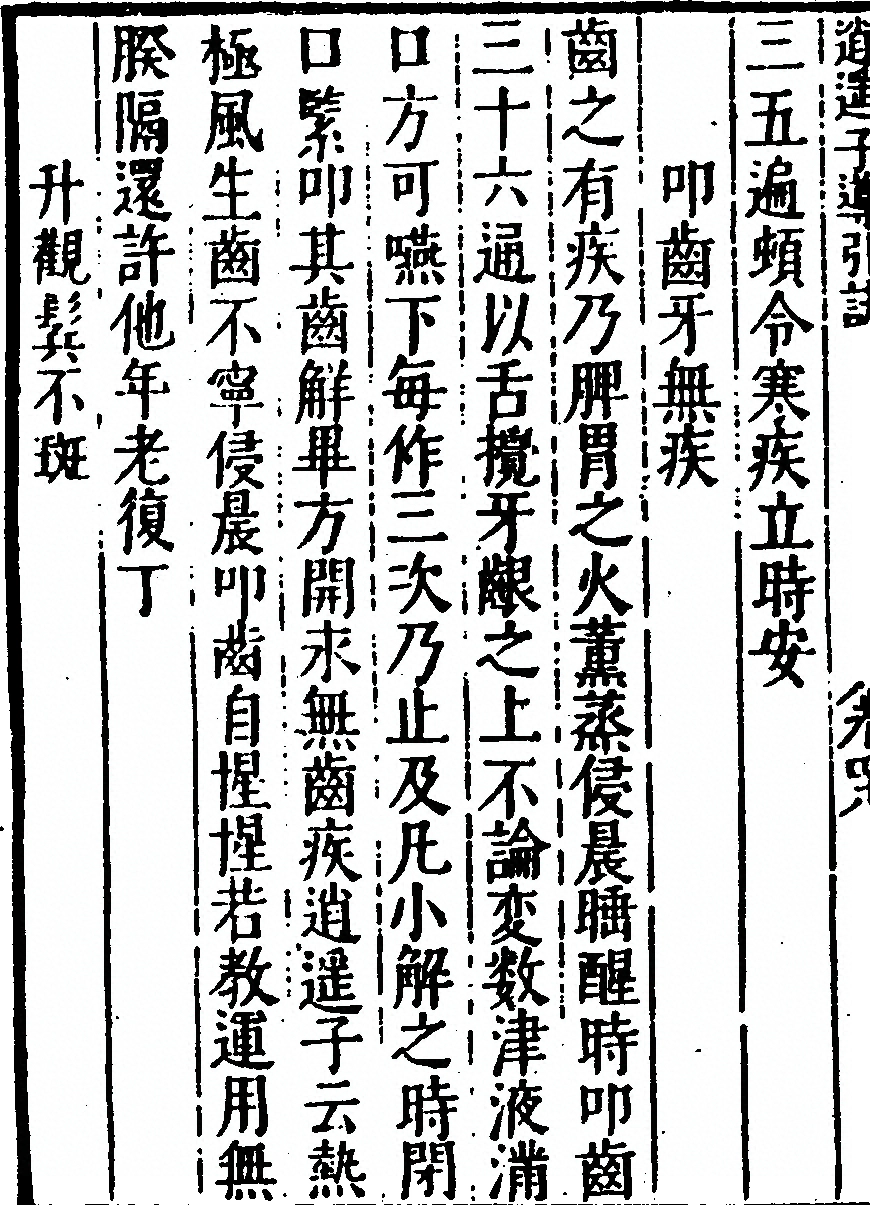 逍遥子導引訣
三五遍頻令寒疾立時安
叩齒牙無疾
齒之有疾乃脾胃之火薰蒸侵晨睡醒時叩齒
三十六通以舌攪牙齦之上不論変数津液滿
口方可嚥下每作三次乃止及凡小解之時閉
口緊叩其齒解畢方開永無齒疾逍遥子云熱
極風生齒不寧侵晨叩齒自惺惺若教運用無
暌隔還許他年老復丁
升觀鬂不斑